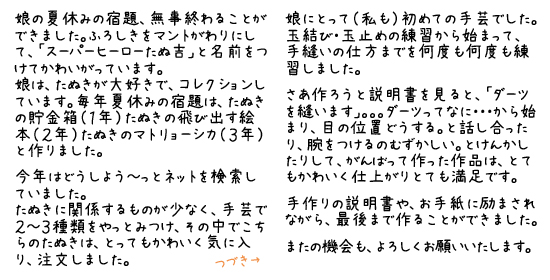 娘の夏休みの宿題、無事終わることが
できました。ふろしきをマントがわりにし
て、「スーパーヒーローたぬ吉」と名前をつ
けてかわいがっています。
娘は、たぬきが大好きで、コレクションし
ています。毎年夏休みの宿題は、たぬき
の貯金箱(1年)たぬきの飛び出す絵
本(2年)たぬきのマトリョーシカ(3年)
と作りました。
今年はどうしよう～っとネットを検索し
ていました。
たぬきに関係するものが少なく、手芸で
2～3種類をやっとみつけ、その中でこち
らのたぬきは、とってもかわいく気に入
り、注文しました。
つづき→
娘にとって(私も)初めての手芸でした。
玉結び・玉止めの練習から始まって、
手縫いの仕方までを何度も何度も練
習しました。
さあ作ろうと説明書を見ると、「ダーツ
を縫います」。。。ダーツってなに・・・から始
まり、目の位置どうする。と話し合った
り、腕をつけるのむずかしい。とけんかし
たりして、がんばって作った作品は、とて
もかわいく仕上がりとても満足です。
手作りの説明書や、お手紙に励まされ
ながら、最後まで作ることができました。
またの機会も、よろしくお願いいたします。